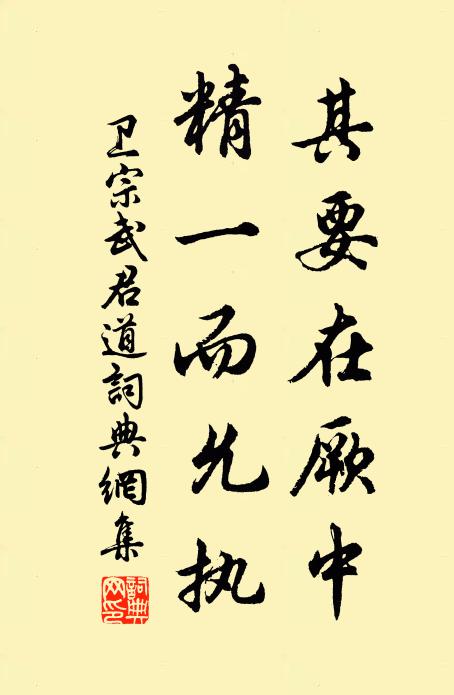 其要在厥中
精一而允执
卫宗武君道詞典網集
詞典網印